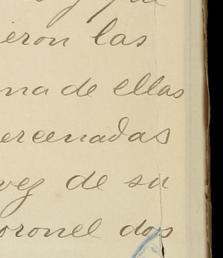 y que
ieron las
na de ellas
ercenadas
vez de su
oronel dos